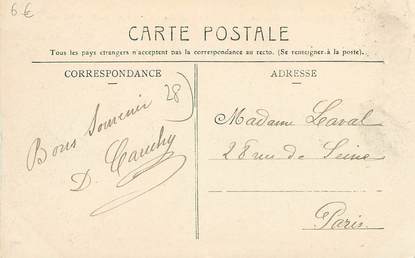 6 €
CARTE POSTALE
Tous les pays étrangers n'acceptent pas la correspondance au recto. (Se renseigner à la poste).
CORRESPONDANCE
28
Bons Souvenir
D. Cauchy
ADRESSE
Madame Laval
28 rue de Seine
Paris